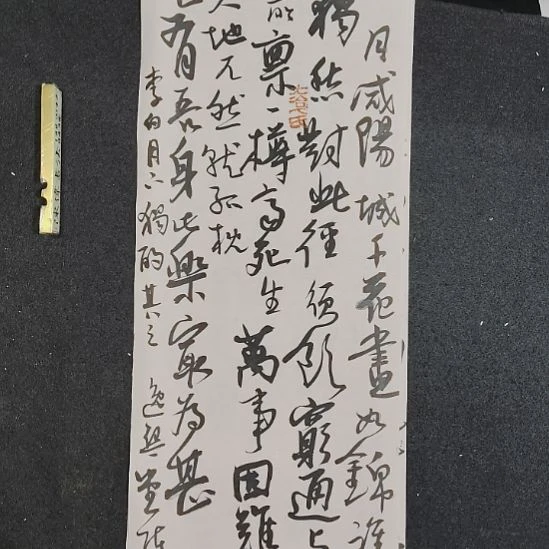 月咸陽城千花晝如錦誰
獨愁對此徑須飲窮通與
所稟一樽齊死生萬事固難
天地兀然就孤枕
有吾身此樂寂為甚
李白月下獨酌其三 逸興堂